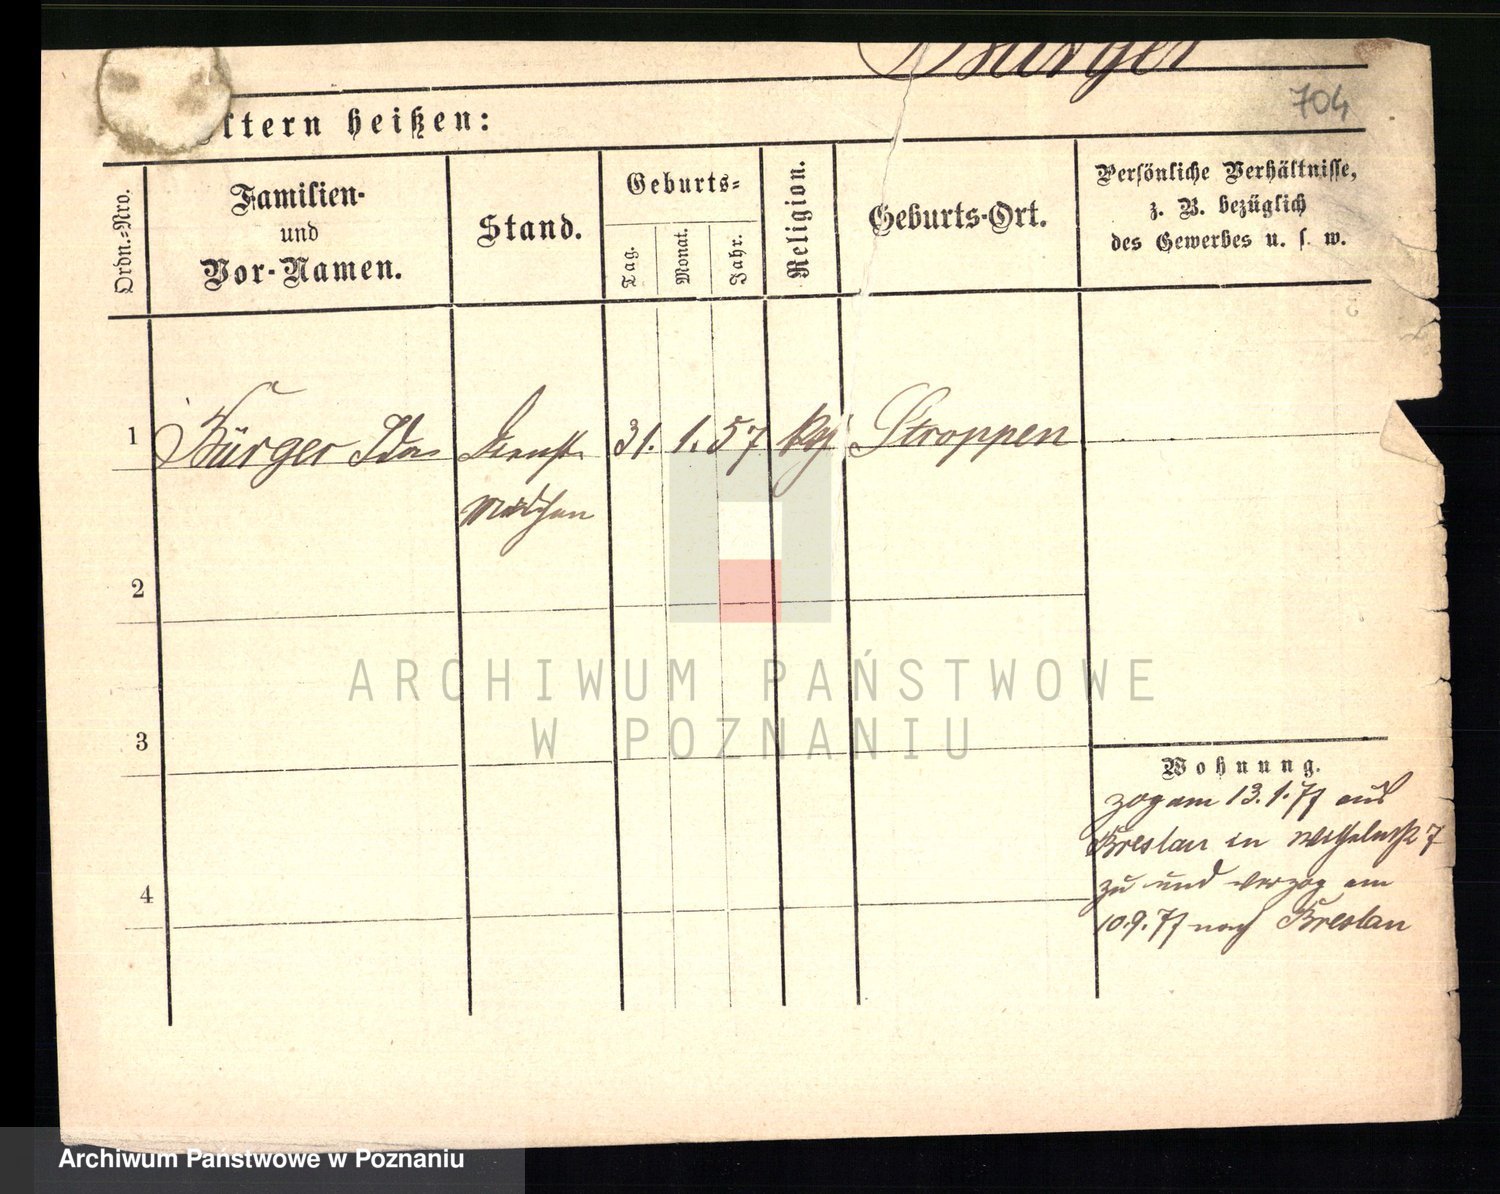 Bürger
704
ltern heißen:
Ordn.-Nro.
Familien-
und
Vor-Namen.
Stand.
Geburts-
Tag.
Monat.
Jahr.
Religion.
Geburts-Ort.
Persönliche Verhältnisse,
z. B. bezüglich
des Gewerbes u. s. w.
1
Bürger Ida
Dienst
31.
1.
57
Stroppen
Mädchen
2
ARCHIWUM PAŃSTWOWE
W POZNANIU
3
Wohnung.
zog am 13.1.77 aus
Breslau in Wilhelmstr 7
zu und verzog am
4
10.9.77 nach Breslau
Archiwum Państwowe w Poznaniu